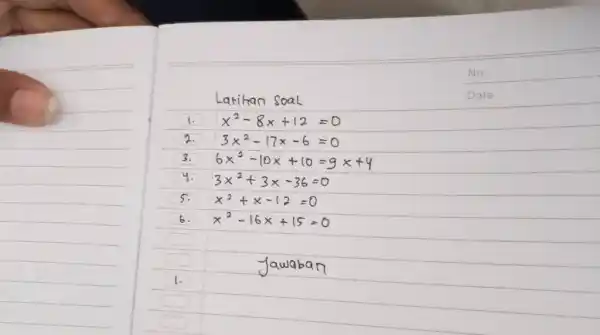 No
Date
Latihan Soal
1. x² - 8x + 12 = 0
2. 3x² - 17x - 6 = 0
3. 6x² - 10x + 10 = 9x + 4
4. 3x² + 3x - 36 = 0
5. x² + x - 12 = 0
6. x² - 16x + 15 = 0
Jawaban
1.